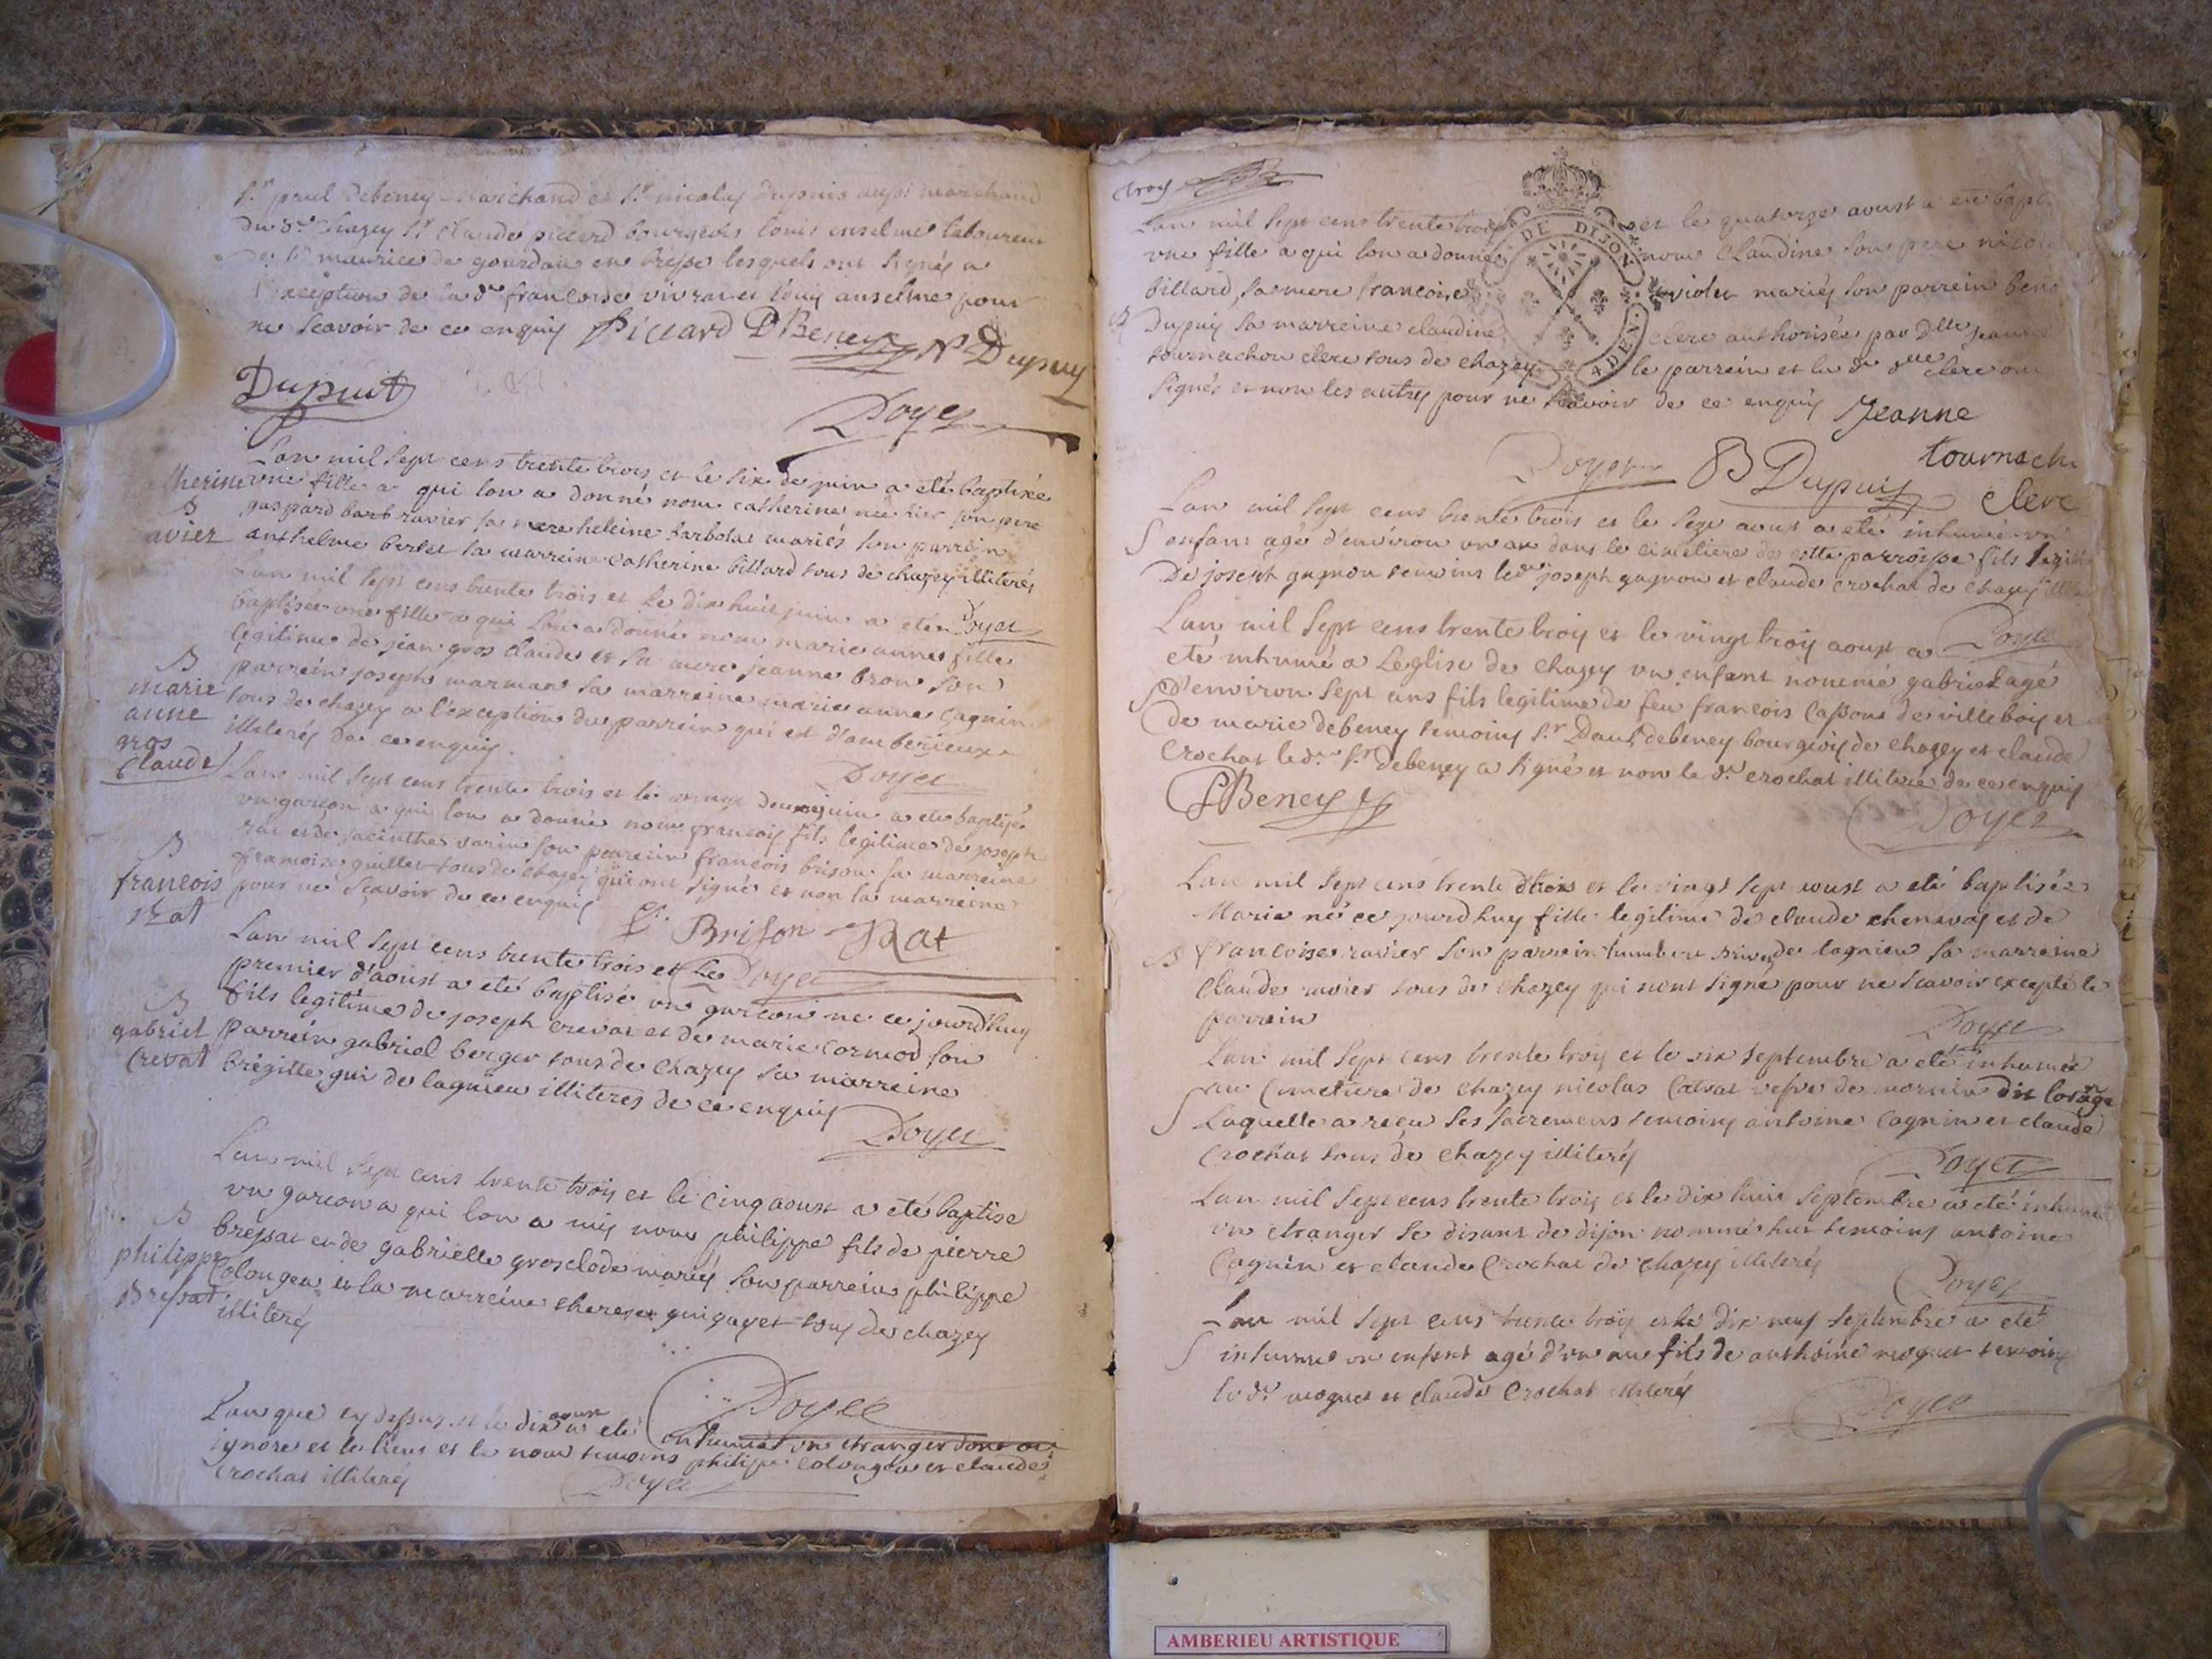 Sr paul debeney marchand et Sr nicolas dupuis aussi marchand
du dt chazey Sr Claude piccard bourgeois louis enselme laboureur
de St maurice de gourdan en bresse lesquels ont signés a
l'exception de la dte francoise et louis anselme pour
ne scavoir de ce enquis Piccard PDBeney N Dupuy
Dupuit
Doyet
Lan mil sept cens trente trois et le six de juin a eté baptisée
therine une fille a qui lon a donné nom catherine née hier son pere
B gaspard ravier sa mere heleine barbolat mariés son parrein
avier anthelme bertet la marreine catherine billard tous de chazey illiterés
Doyet
Lan mil sept cens trente trois et le dix huit juin a eté
baptisée une fille a qui lon a donné nom marie anne fille
legitime de jean gros claude et sa mere jeanne bron son
B parrein joseph marman sa marreine marie anne Cagnin
marie tous de chazey a l'exception du parrein qui est d'amberieux
anne illiterés de ce enquis.
gros
Claude
Doyet
Lan mil sept cens trente trois et le vingt deux juin a eté baptisé
un garcon a qui lon a donné nom francois fils legitime de joseph
rat et de jacinthe varin son parrein francois brison sa marreine
B francoise quillet tous de chazey qui ont signés et non la marreine
francois pour ne scavoir de ce enquis
Rat
f. Brison Rat
Doyet
Lan mil sept cens trente trois et le
premier d'aoust a eté baptisé un garcon né ce jourd'huy
B fils legitime de joseph crevat et de marie cormod son
gabriel parrein gabriel berger tous de chazey sa marreine
Crevat brigitte gui de lagnieu illiteres de ce enquis
Doyet
Lan mil sept cens trente trois et le cinq aoust a eté baptisé
un garcon a qui lon a mis nom philippe fils de pierre
B bressat et de gabrielle grosclode mariés son parrein philippe
philippe Colongea et la marreine therese guigayet tous de chazey
Bressat illiterés
Doyet
Lan que cy dessus et le dix aoust a eté inhumé un etranger dont on
ignore et le lieu et le nom temoins philippe colongea et claude
Crochat illiterés
Doyet
troys
Lan mil sept cens trente trois et le quatorze aoust a eté bapt
une fille a qui lon a donné nom Claudine son pere
billard sa mere francoise violet mariés son parrein
B Dupuis sa marreine claudine clerc authorisée par Dlle jeanne
tournachon clerc tous de chazey le parrein et la de dlle clerc ont
signés et non les autres pour ne scavoir de ce enquis Jeanne
Doyet B Dupuis tournach
Clerc
DE DIJON
Lan mil sept cens trente trois et le seze aout a eté inhumé un
S enfant agé d'environ un an dans le cimetiere de cette parroisse fils legit
De joseph gagnon temoins led joseph gagnon et claude crochat de chazey
Doyet
Lan mil sept cens trente troiş et le vingt trois aoust a
eté inhumé a Leglise de chazey un enfant nommé gabriel agé
S d'environ sept ans fils legitime de feu francois Cassone de villebois et
de marie debeney temoins Sr Paul debeney bourgeois de chazey et claude
Crochat led. Sr debeney a signé et non le dt crochat illiteré de ce enquis
PBeney
Doyet
Lan mil sept cens trente trois et le vingt sept aoust a eté baptisée
Marie née ce jourdhuy fille legitime de claude chenavoy et de
B francoise ravier son parrein humbert de lagnieu sa marreine
Claude ravier tous de chazey qui nont signé pour ne scavoir excepté le
parrein
Doyet
Lan mil sept cens trente trois et le six septembre a eté inhumée
au Cimetiere de chazey nicolas vefve de dit
S Laquelle a recu les sacremens temoins antoine Cagnin et claude
Crochat tous de chazey illiterés
Doyet
Lan mil sept cens trente trois et le dix huit septembre a eté inhumé
un etranger se disant de dijon nommé temoins antoine
Cagnin et claude Crochat de chazey illiterés
Doyet
Lan mil sept cens trente trois et le dix neuf septembre a eté
S inhumé un enfant agé d'un an fils de anthoine moguet temoins
le dt moguet et claude Crochat illiterés
Doyet
AMBERIEU ARTISTIQUE